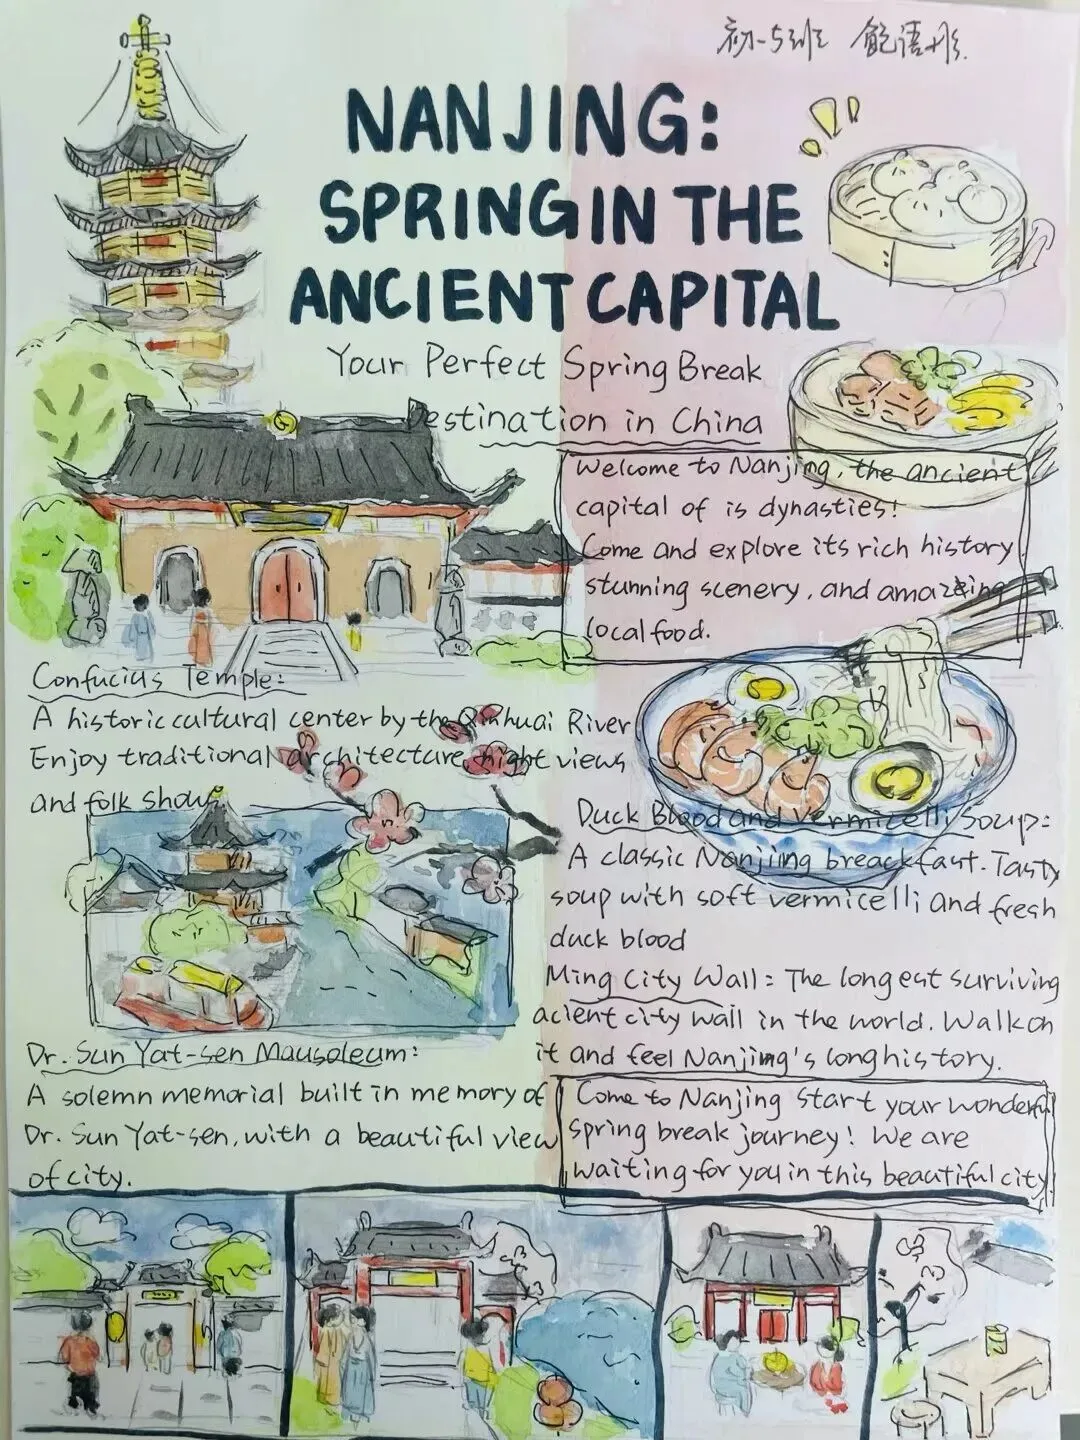 初一5班 鲍语彤
NANJING:
SPRING IN THE
ANCIENT CAPITAL
Your Perfect Spring Break
Destination in China
Welcome to Nanjing, the ancient
capital of is dynasties!
Come and explore its rich history
stunning scenery, and amazing
local food.
Confucius Temple:
A historic cultural center by the Qinhuai River
Enjoy traditional architecture, night views
and folk shows.
Duck Blood and Vermicelli Soup:
A classic Nanjing breackfast. Tasty
soup with soft vermicelli and fresh
duck blood
Ming City Wall: The longest surviving
acient city wall in the world. Walk on
it and feel Nanjing's long history.
Dr. Sun Yat-sen Mausoleum:
A solemn memorial built in memory of
Dr. Sun Yat-sen, with a beautiful view
of city.
Come to Nanjing start your wonderful
spring break journey! We are
waiting for you in this beautiful city